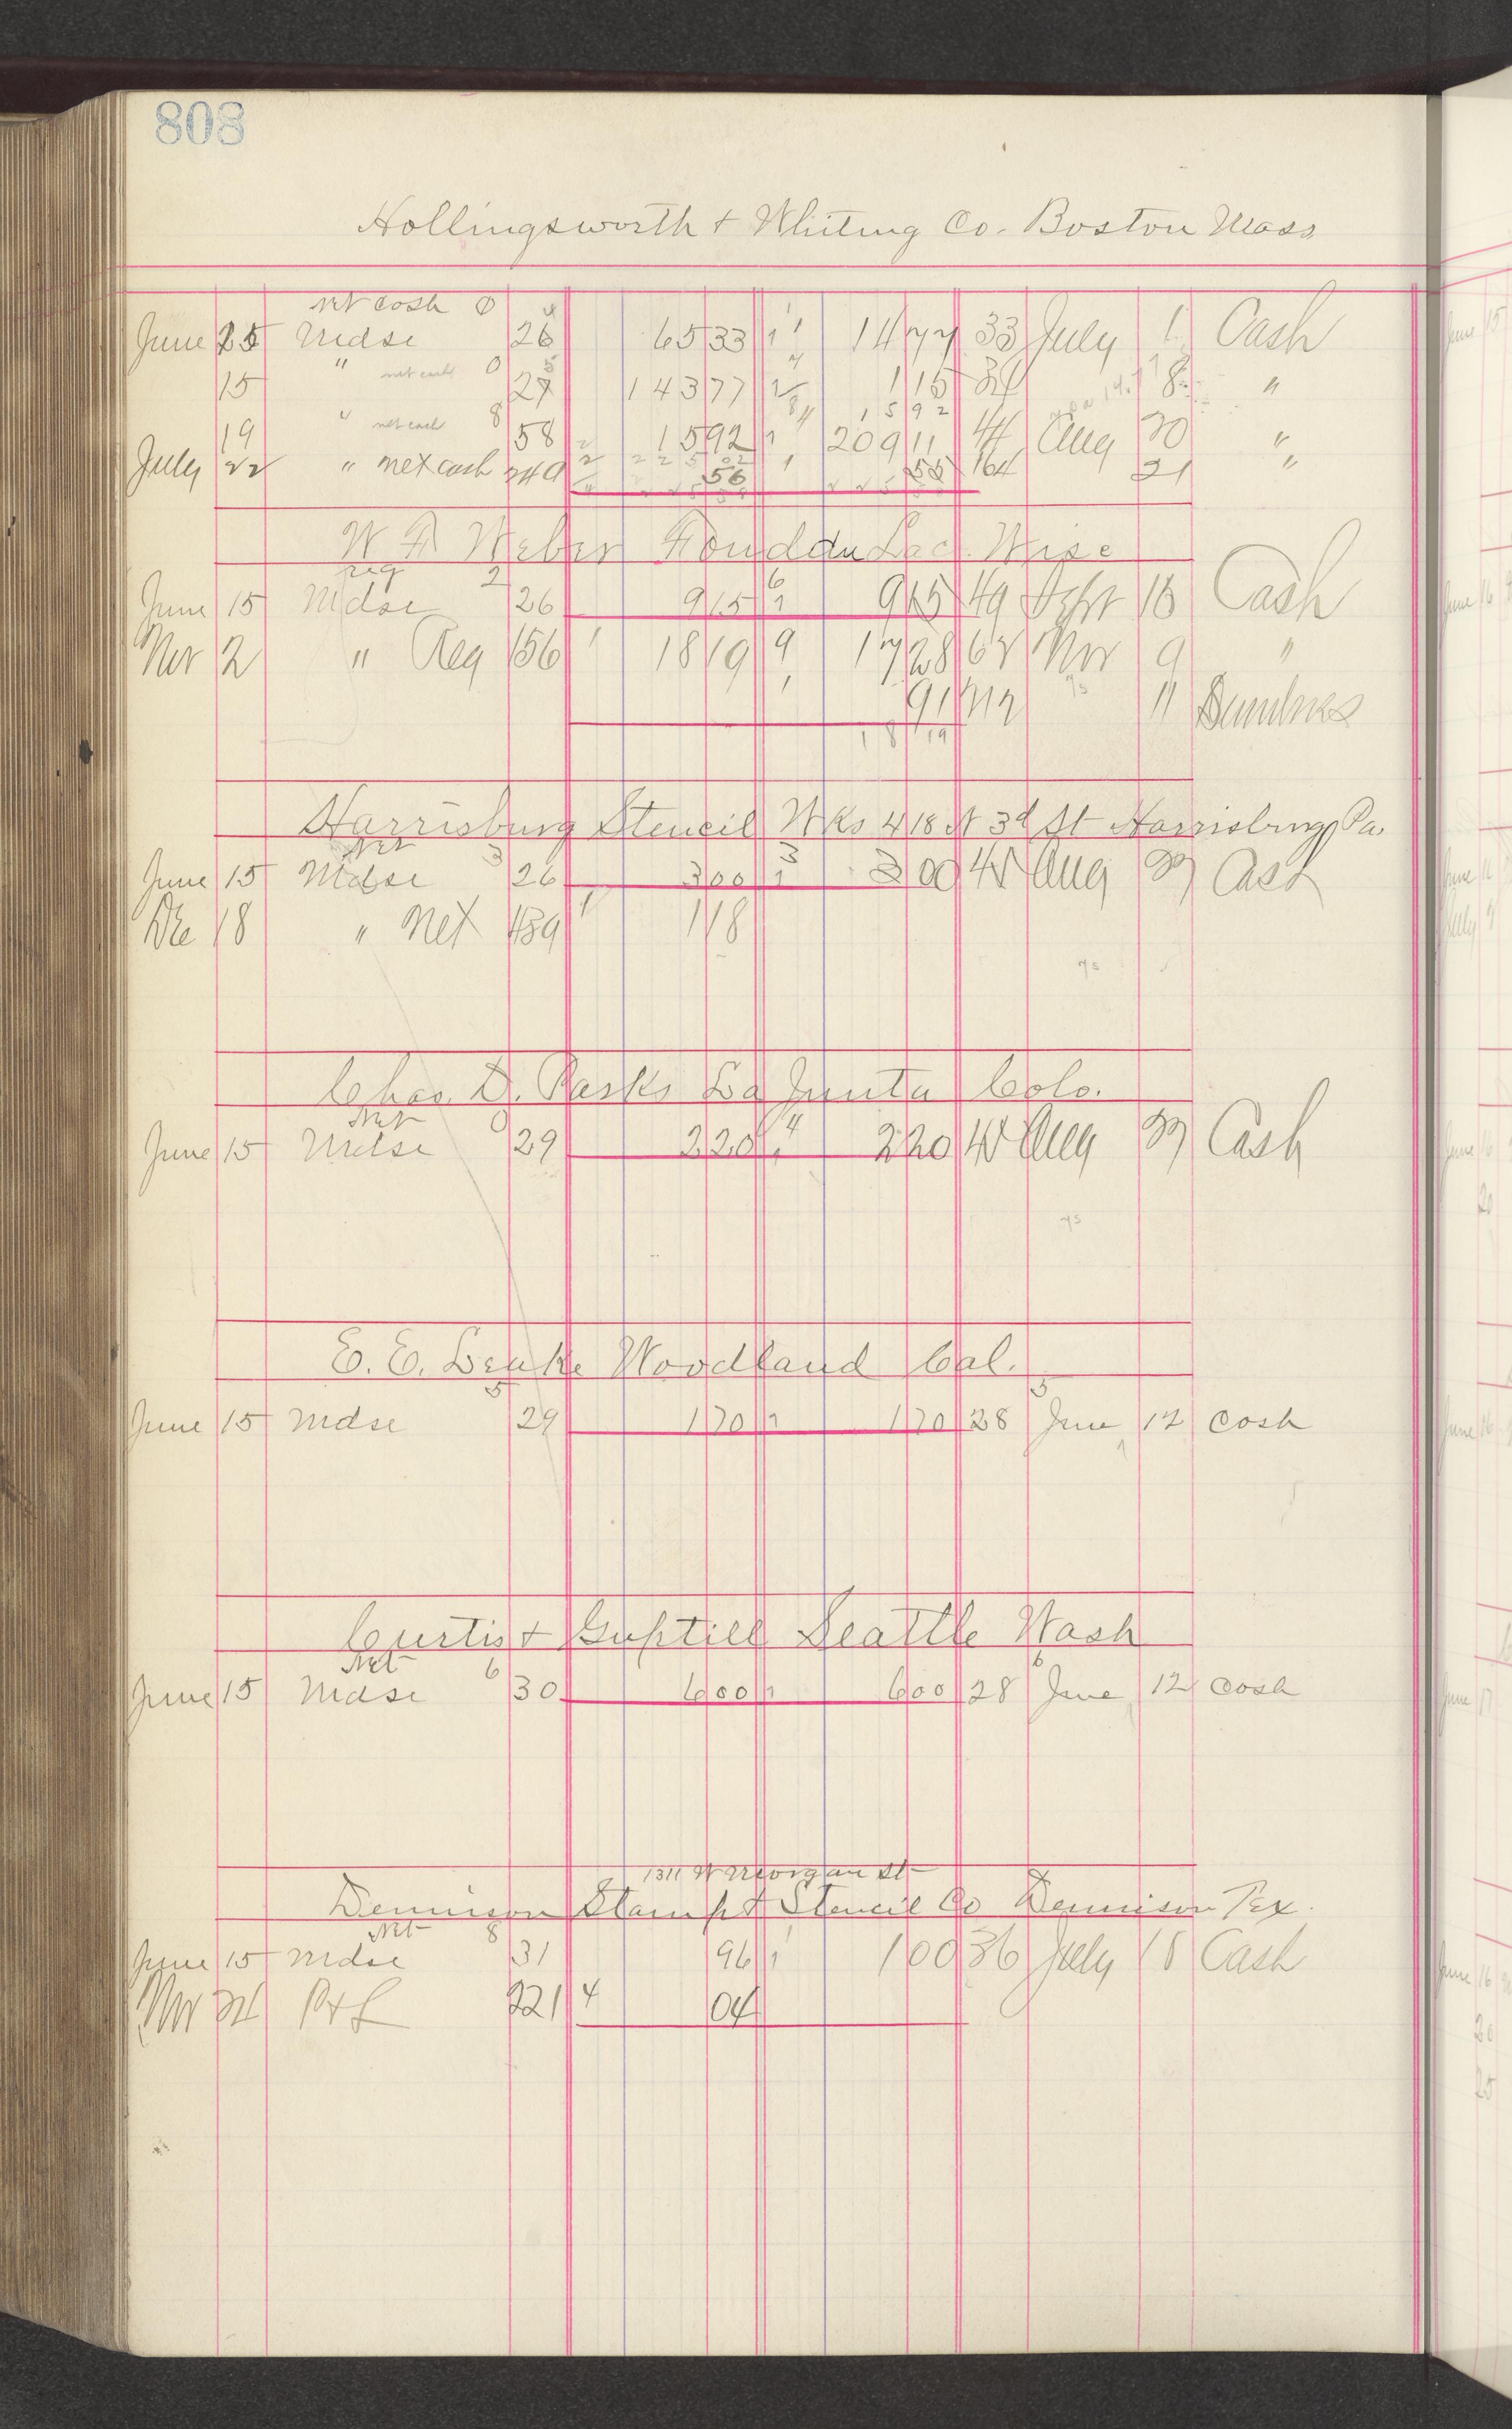 808
Hollingsworth & Whiting Co. Boston Mass
net cash 0
June 15 Mdse 26 65 33 1 14 77 33 July 1 Cash
15 " net cash 0 27 143 77 1 1 15 34 8 "
1 5 9 2
19 " net cash 8 58 15 92 1 209 11 44 Aug 20 "
July 22 " net cash 249 56 55 164 21 "
W Weber Fond du Lac Wisc
reg 2 6
June 15 Mdse 26 9 65 1 9 65 49 Sept 18 Cash
Nov 2 " Reg 156 1 18 19 9 17 28 62 Nov 9 "
1 91 11
18 19
Harrisburg Stencil Wks 418 N 3d St Harrisburg Pa.
Net 3 3
June 15 Mdse 26 3 00 1 3 00 45 Aug 27 Cash
Dec 18 " Net 439 1 1 18
Chas. D. Parks La Junta Colo.
Net 0 4
June 15 Mdse 29 2 20 1 2 20 45 Aug 27 Cash
E. E. Leake Woodland Cal.
5 5
June 15 Mdse 29 1 70 1 1 70 28 June 12 Cash
Curtis & Guptill Seattle Wash
Net 6 6
June 15 Mdse 30 6 00 1 6 00 28 June 12 Cash
1311 W Morgan St
Dennison Stamp & Stencil Co Dennison Tex.
Net 8 1
June 15 Mdse 31 96 1 1 00 36 July 8 Cash
Nov 24 P & L 221 4 04